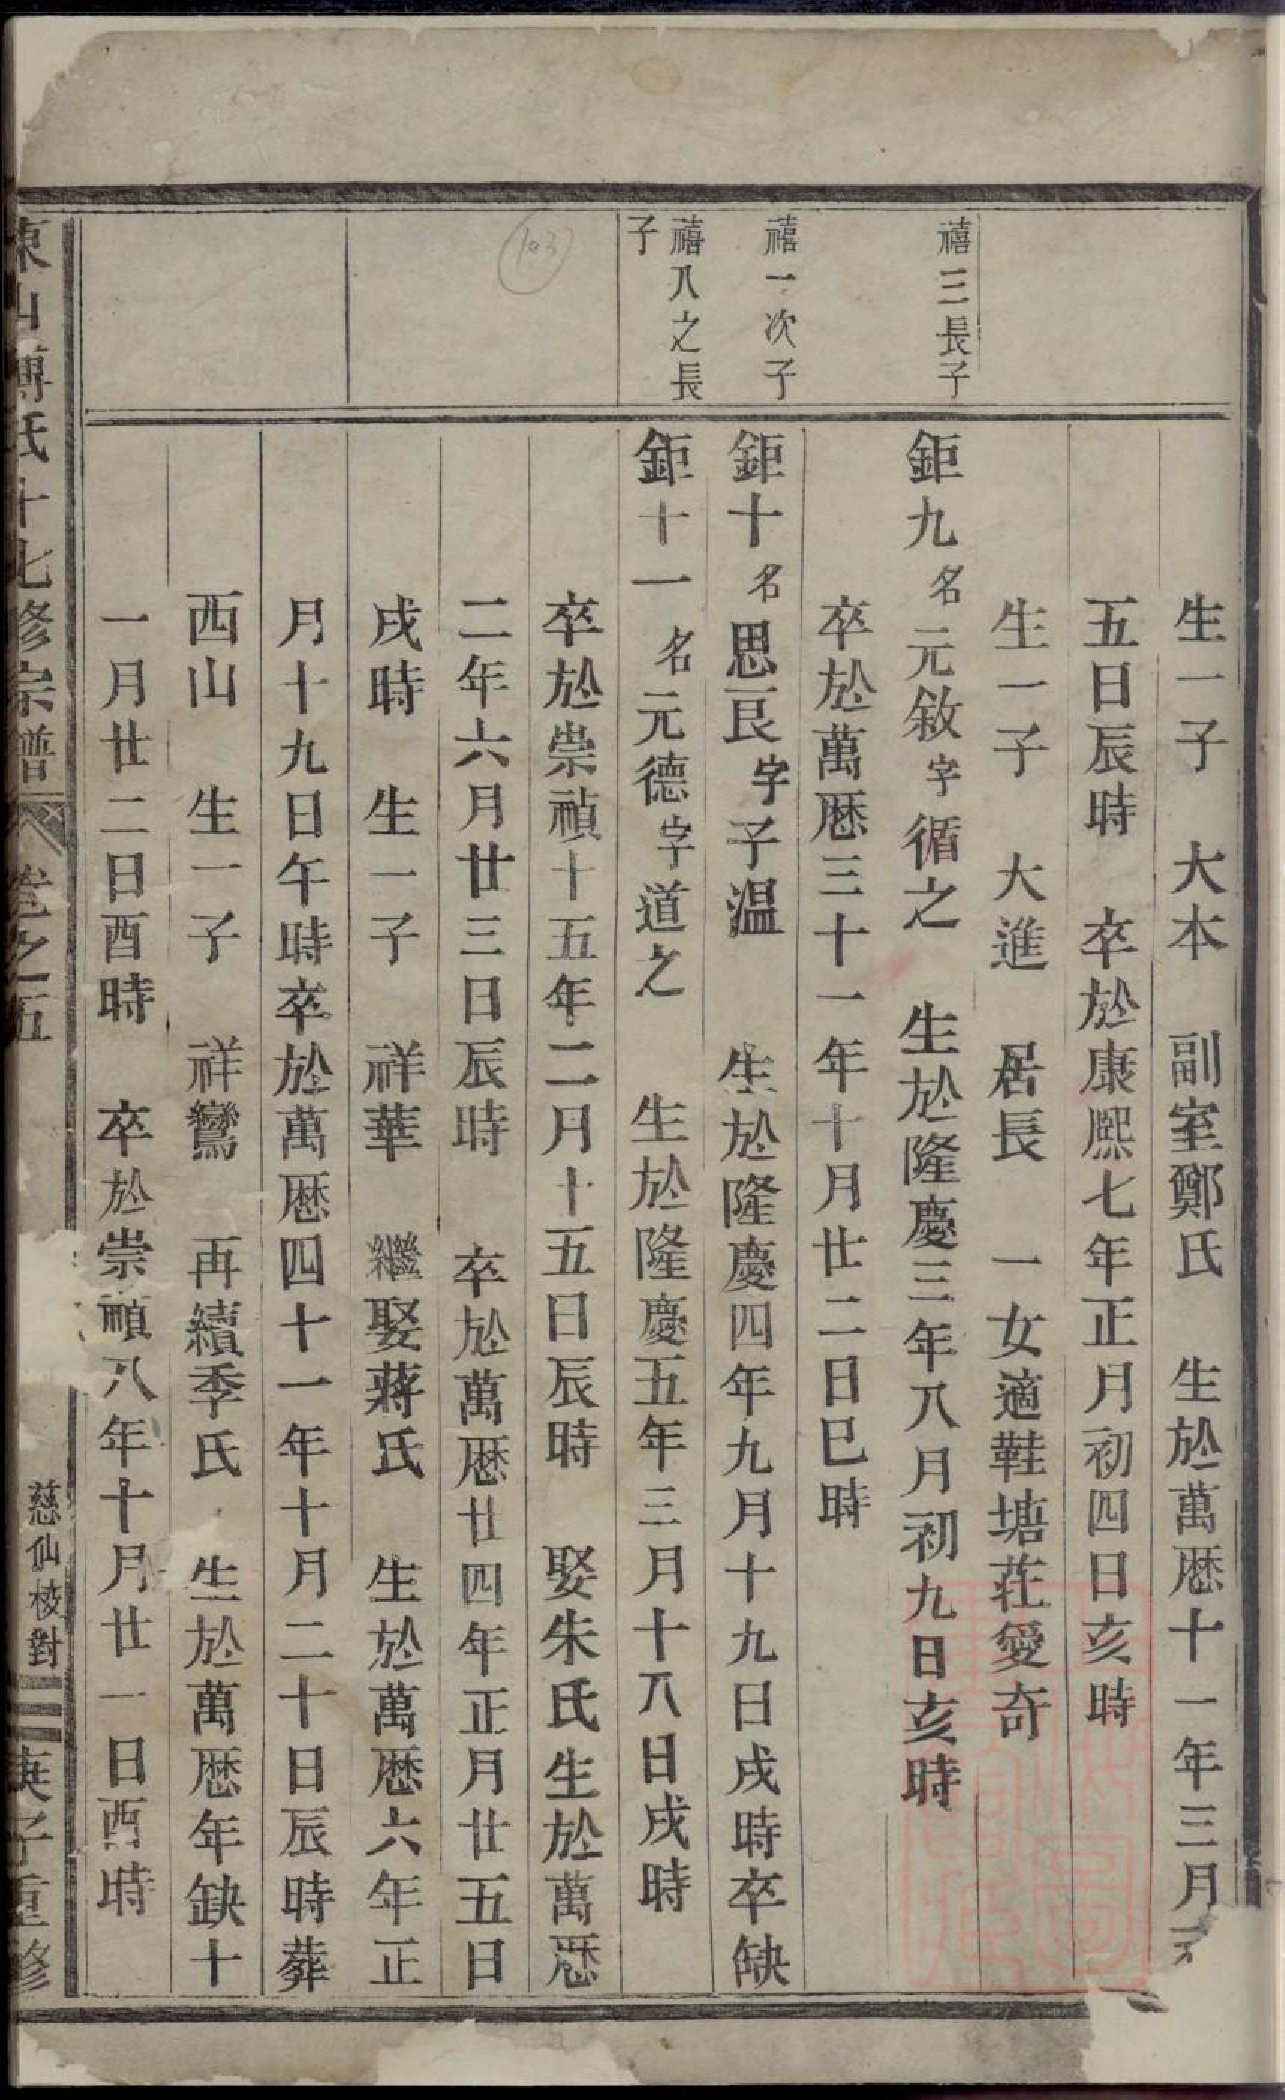 生一子　大本　副室鄭氏　生於萬厯十一年三月
五日辰時　卒於康熙七年正月初四日亥時
生一子　大進　居長　一女適鞋塘莊愛奇
禧三長子
鉅九名元敘字循之　生於隆慶三年八月初九日亥時
卒於萬厯三十一年十月廿二日巳時
禧一次子
鉅十名思艮字子溫　生於隆慶四年九月十九日戌時卒缺
禧八之長
子
鉅十一名元德字道之　生於隆慶五年三月十八日戌時
卒於崇禎十五年二月十五日辰時　娶朱氏生於萬厯
二年六月廿三日辰時　卒於萬厯廿四年正月廿五日
戌時　生一子　祥華　繼娶蔣氏　生於萬厯六年正
月十九日午時卒於萬厯四十一年十月二十日辰時葬
西山　生一子　祥鸞　再續季氏　生於萬厯年缺十
一月廿二日酉時　卒於崇禎八年十月廿一日酉時
東山傅氏十七修宗譜　卷之五　慈仙校對　庚子重修
103